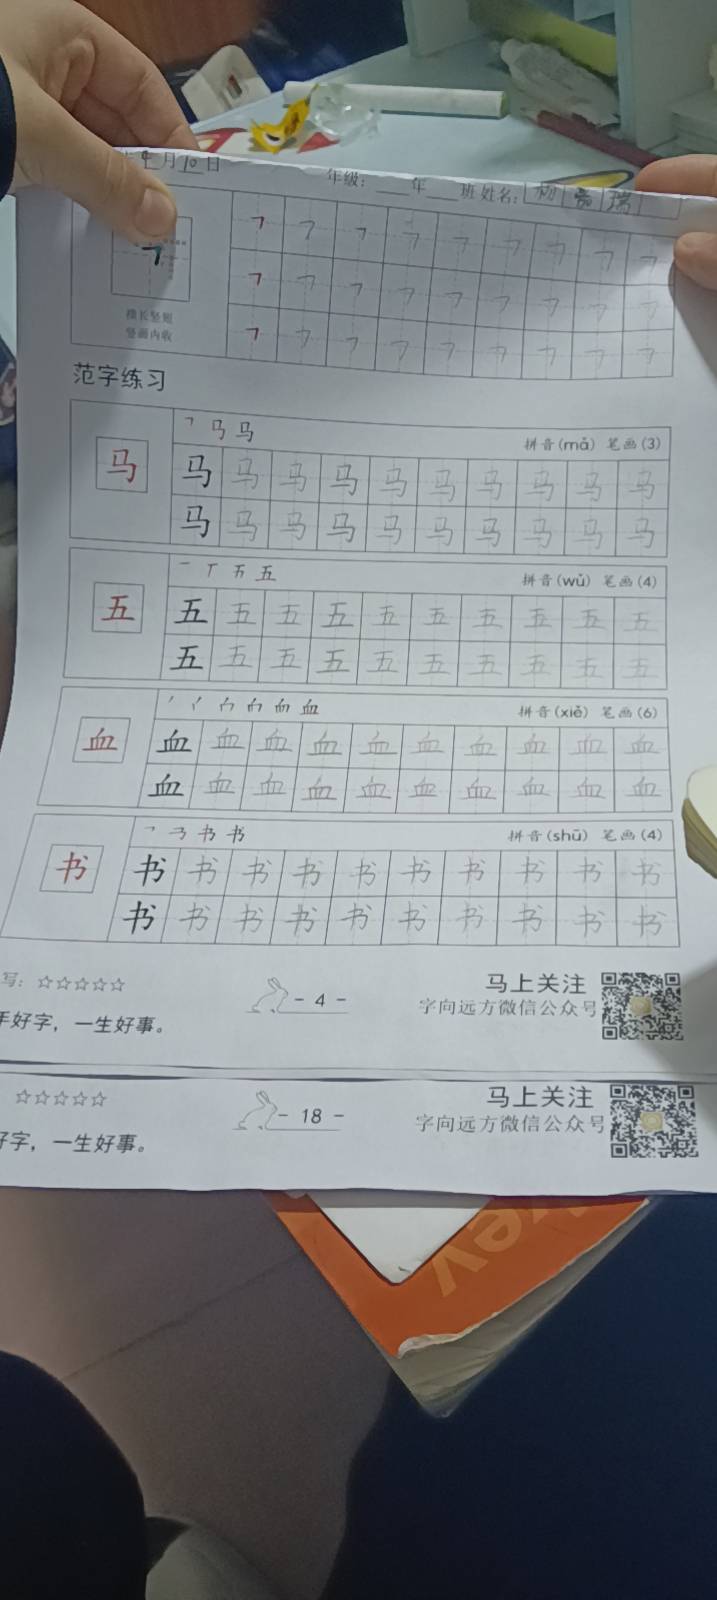 9月10日 年级：____年____班 姓名：杨 瑞
横长竖短
竖画内收
范字练习
马 马
拼音(mǎ) 笔画(3)
马 马 马 马 马 马 马 马 马 马 马
马 马 马 马 马 马 马 马 马 马
五
拼音(wǔ) 笔画(4)
五 五 五 五 五 五 五 五 五 五 五
五 五 五 五 五 五 五 五 五 五
血
拼音(xiě) 笔画(6)
血 血 血 血 血 血 血 血 血 血 血
血 血 血 血 血 血 血 血 血 血
书 书
拼音(shū) 笔画(4)
书 书 书 书 书 书 书 书 书 书 书 书
书 书 书 书 书 书 书 书 书 书 书
写：☆☆☆☆☆
手好字，一生好事。
- 4 -
马上关注
字向远方微信公众号
☆☆☆☆☆
好字，一生好事。
- 18 -
马上关注
字向远方微信公众号